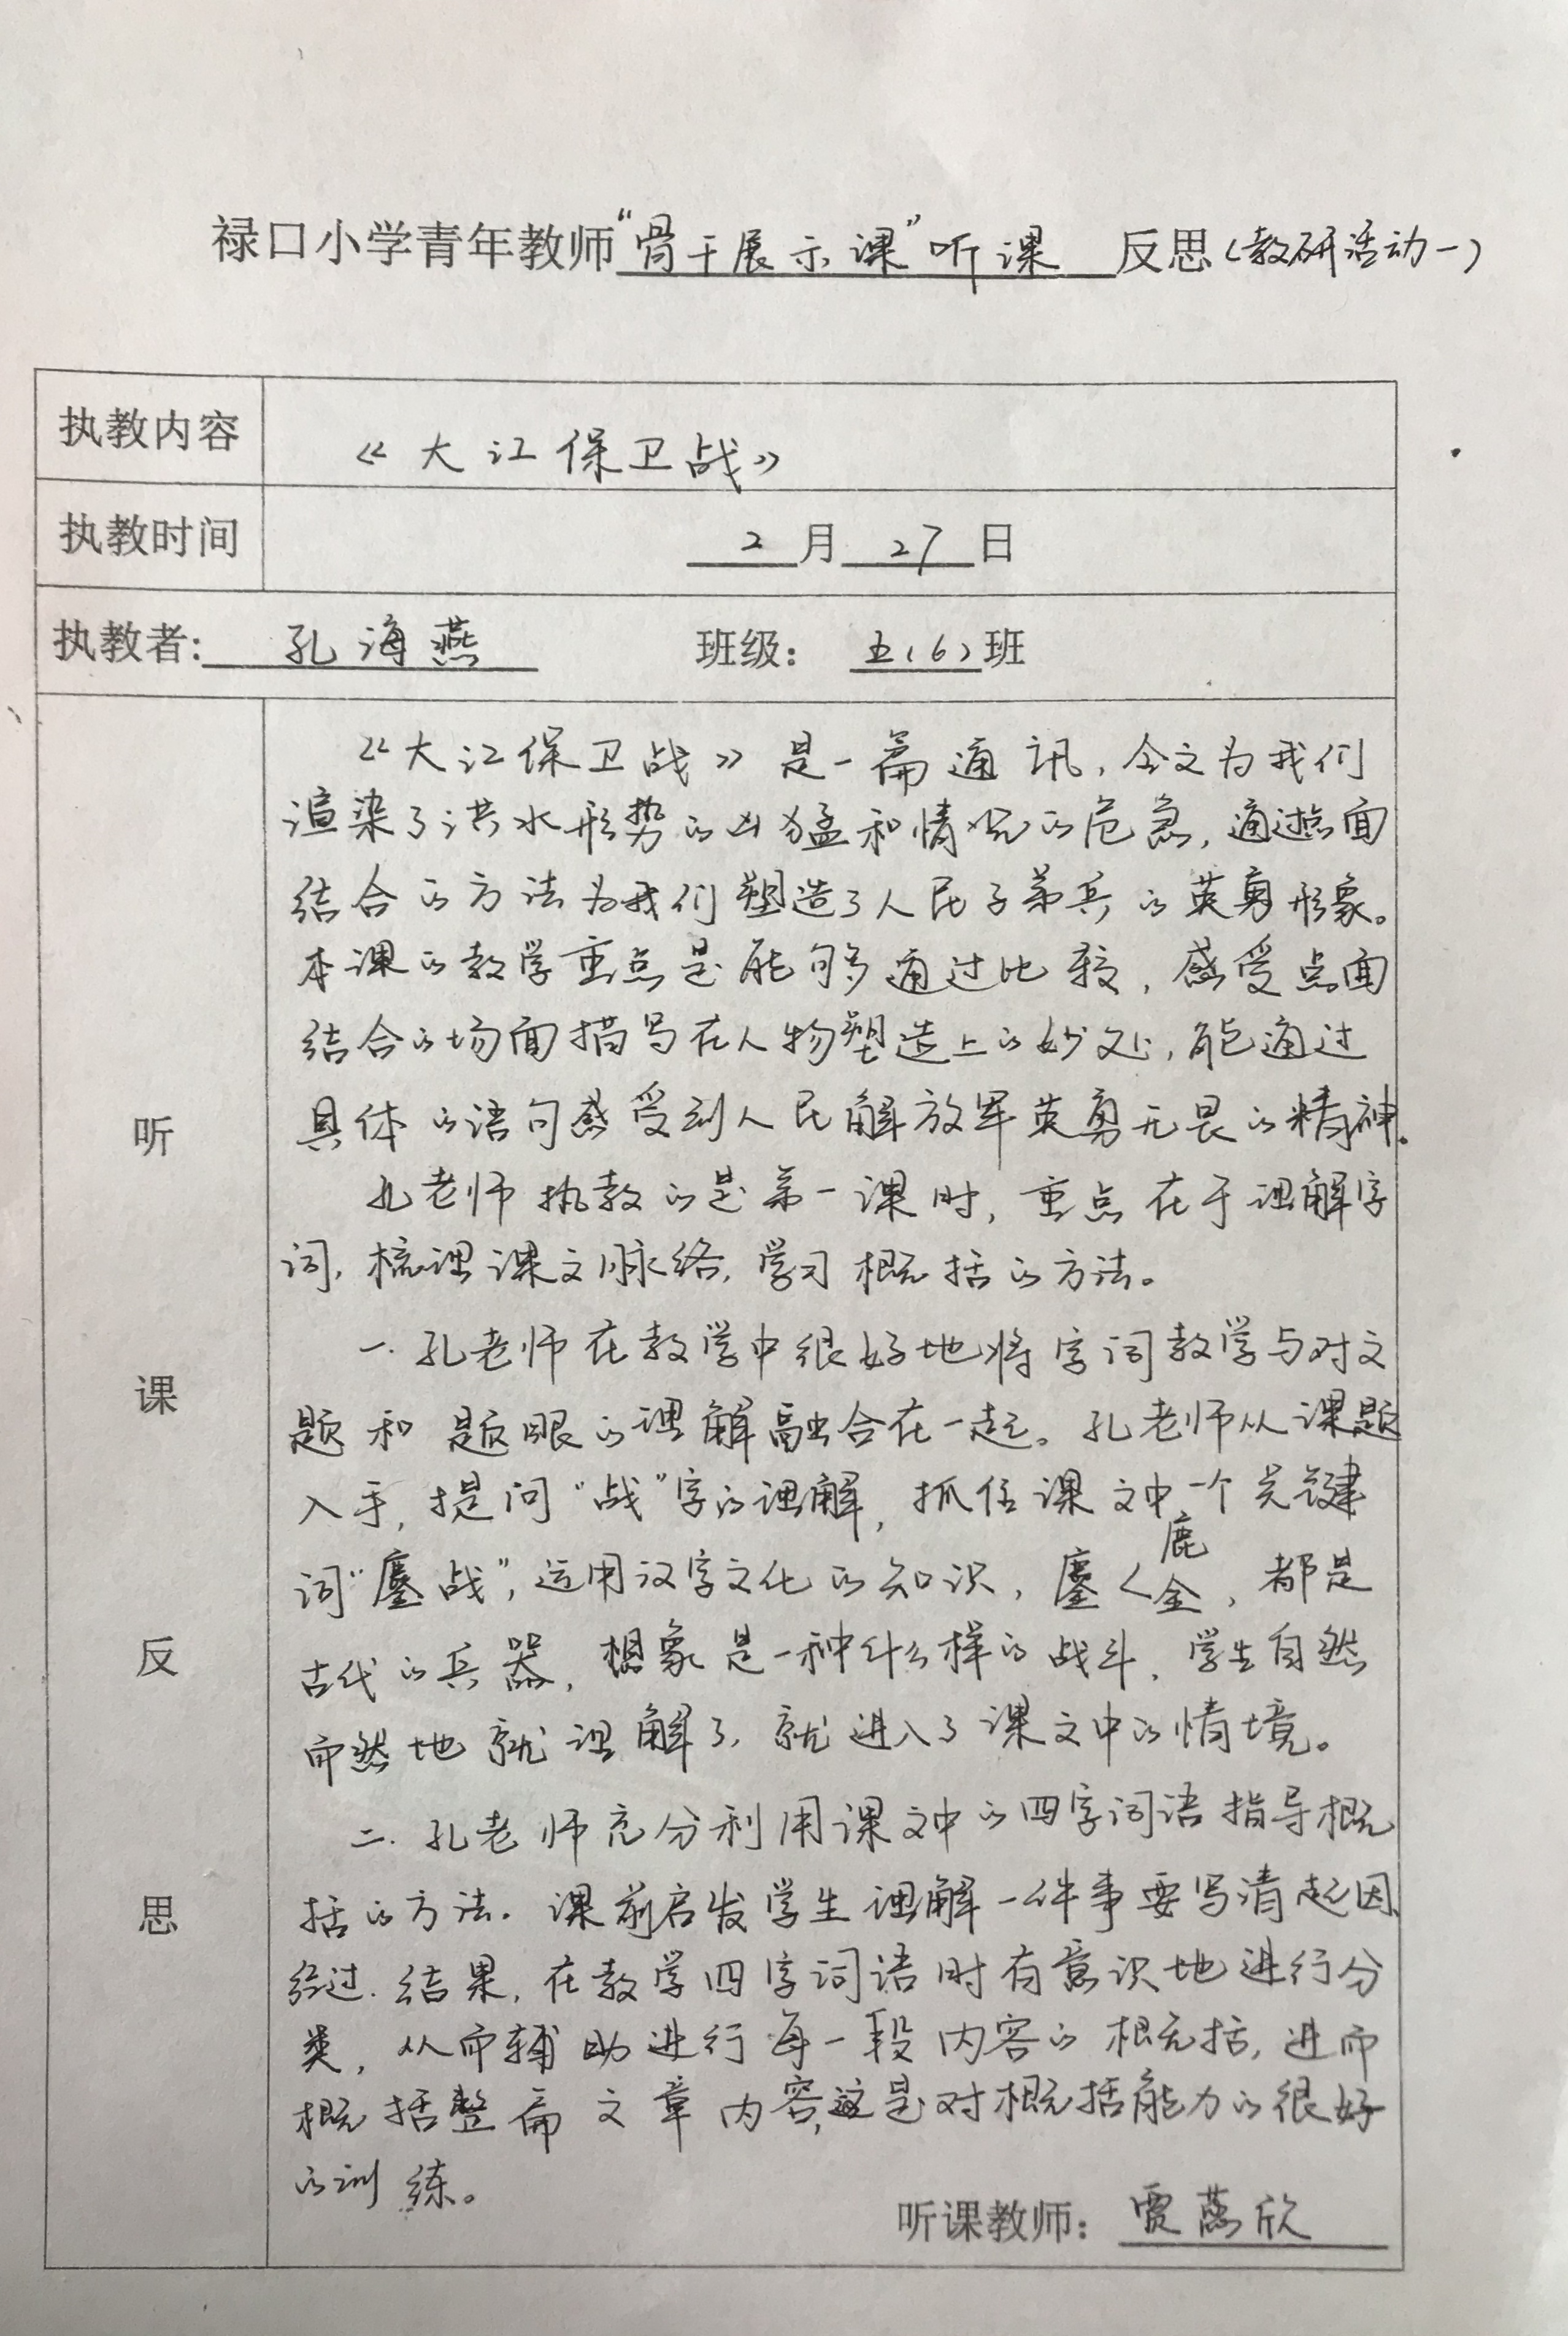 禄口小学青年教师“骨干展示课”听课 反思（教研活动一）
执教内容 《大江保卫战》
执教时间 2月27日
执教者: 孔海燕 班级: 五(6)班
听课反思
《大江保卫战》是一篇通讯,全文为我们
渲染了洪水形势的凶猛和情况的危急,通过点面
结合的方法为我们塑造了人民子弟兵的英勇形象。
本课的教学重点是能够通过比较,感受点面
结合的场面描写在人物塑造上的妙处,能通过
具体的语句感受到人民解放军英勇无畏的精神.
孔老师执教的是第一课时,重点在于理解字
词,梳理课文脉络,学习概括的方法。
一.孔老师在教学中很好地将字词教学与对文
题和题眼的理解融合在一起。孔老师从课题
入手,提问“战”字的理解,抓住课文中一个关键
词“鏖战”,运用汉字文化的知识,鏖<鹿金,都是
古代的兵器,想象是一种什么样的战斗,学生自然
而然地就理解了,就进入了课文中的情境。
二.孔老师充分利用课文中的四字词语指导概
括的方法.课前启发学生理解一件事要写清起因、
经过.结果,在教学四字词语时有意识地进行分
类,从而辅助进行每一段内容的概括,进而
概括整篇文章内容,这是对概括能力的很好
的训练。
听课教师: 贾燕欣